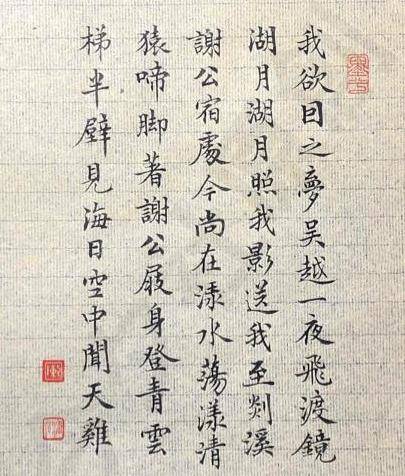 我欲因之夢吳越一夜飛渡鏡
湖月湖月照我影送我至剡溪
謝公宿處今尚在渌水蕩漾清
猿啼脚著謝公屐身登青雲
梯半壁見海日空中聞天雞